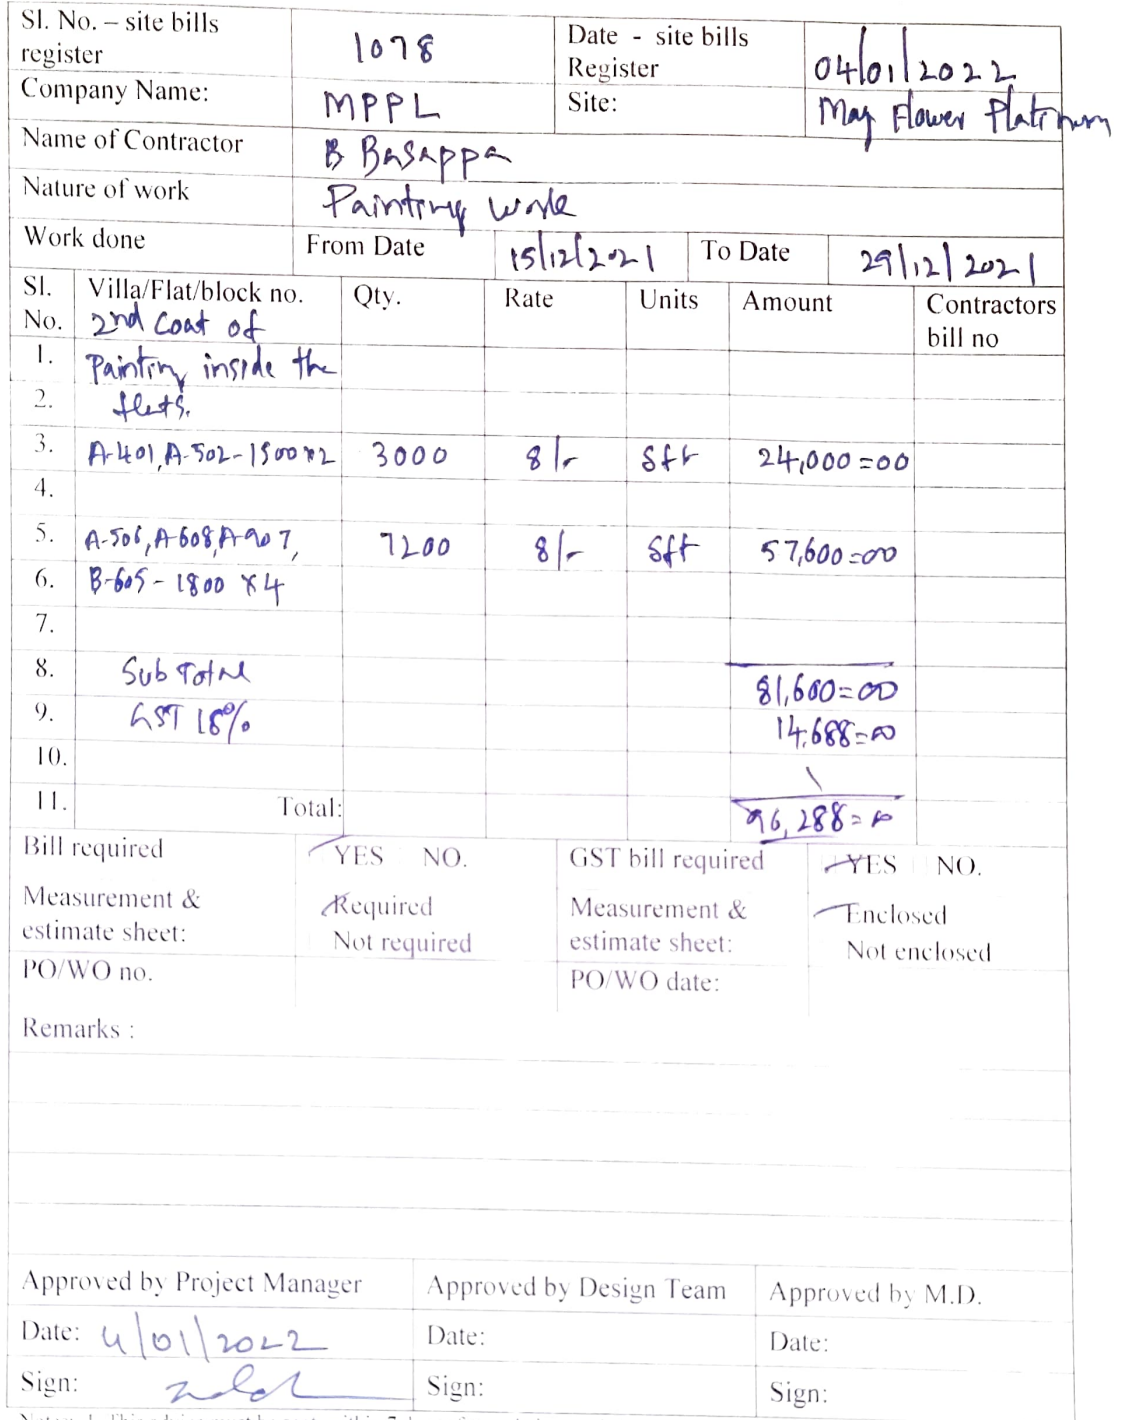 Sl. No. – site bills register 1078 Date - site bills Register 04/01/2022
Company Name: MPPL Site: May Flower Platinum
Name of Contractor B Basappa
Nature of work Painting work
Work done From Date 15/12/2021 To Date 29/12/2021
Sl. No. Villa/Flat/block no. Qty. Rate Units Amount Contractors bill no
2nd coat of
1. Painting inside the
2. flats.
3. A-401, A-502-1500x2 3000 8/- Sft 24,000=00
4.
5. A-506, A-608, A-907, 7200 8/- Sft 57,600=00
6. B-605-1800 x4
7.
8. Sub Total 81,600=00
9. GST 18% 14,688=00
10.
11. Total: 96,288=00
Bill required YES NO. GST bill required YES NO.
Measurement & estimate sheet: Required Not required Measurement & estimate sheet: Enclosed Not enclosed
PO/WO no. PO/WO date:
Remarks :
Approved by Project Manager Approved by Design Team Approved by M.D.
Date: 4/01/2022 Date: Date:
Sign: Sign: Sign: